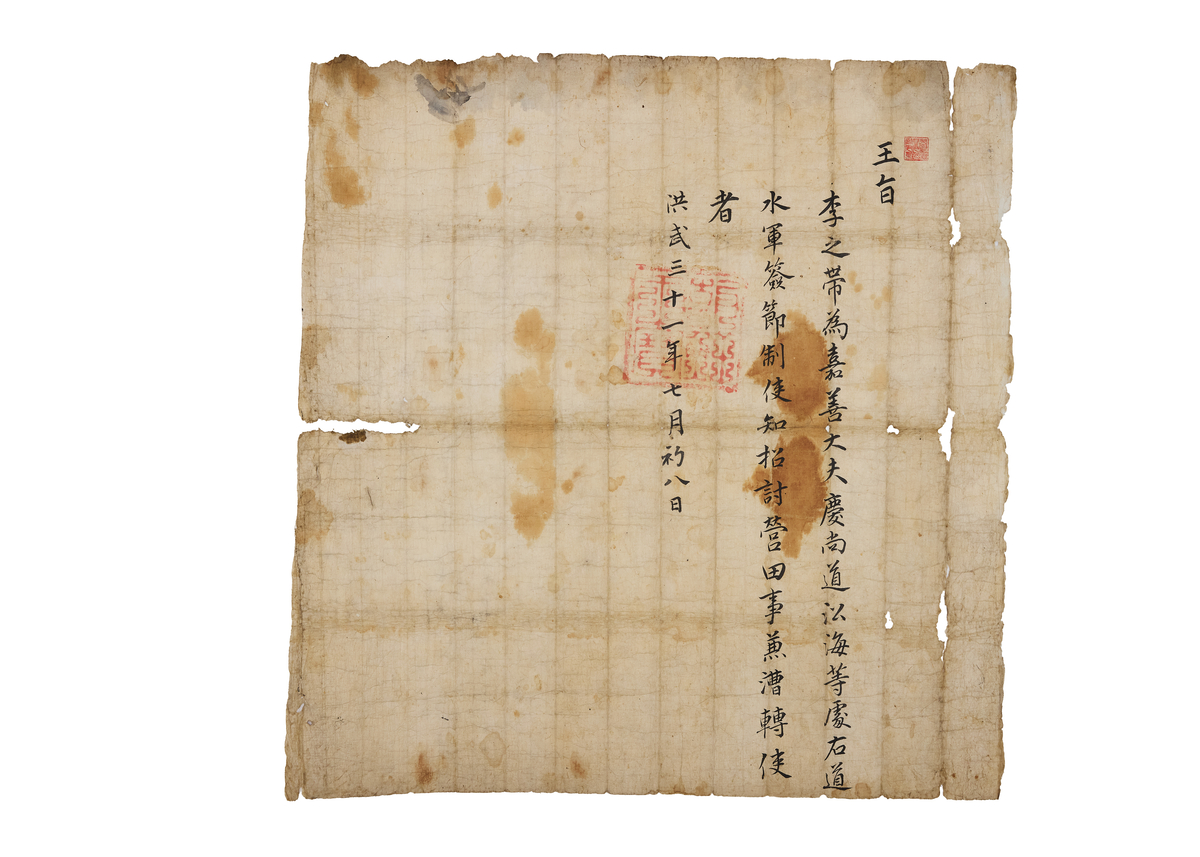 王旨
李之帶為嘉善大夫慶尚道㳂海等處右道
水軍簽節制使知招討營田事蒹漕轉使
者
洪武三十一年七月初八日